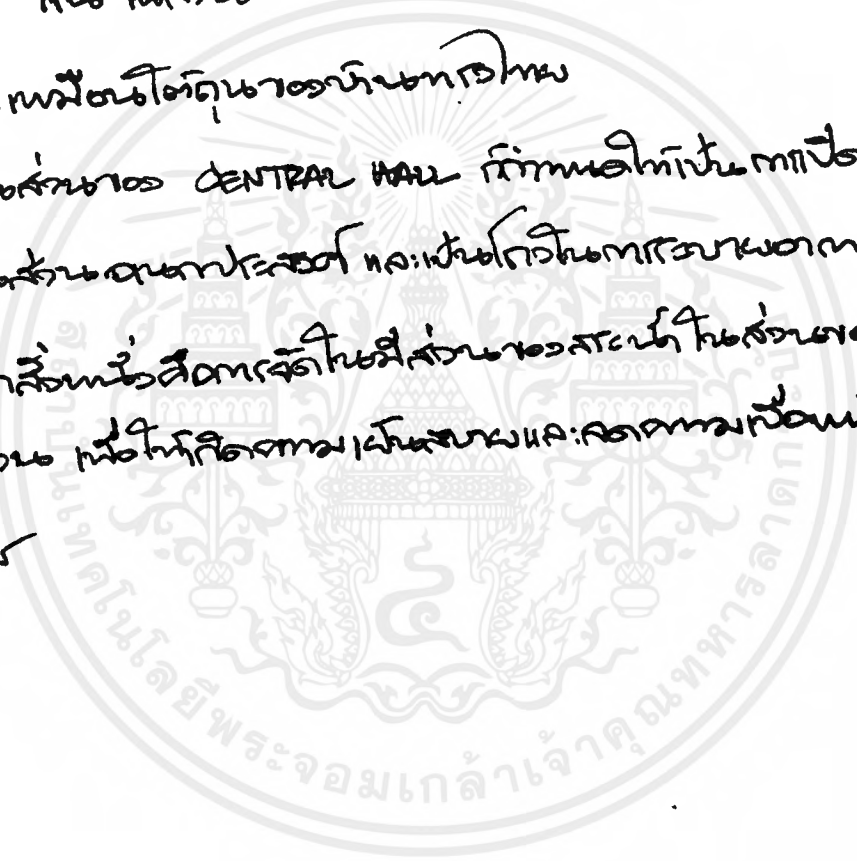 เหมือนใต้ถุนของบ้านทรงไทย
ส่วนของ CENTRAL HALL ก็กำหนดให้เป็นการเปิด
ส่วน อเนกประสงค์ และเป็นโถงในการระบาย
สิ่งหนึ่งคือการจัดให้มีส่วนของสระน้ำ ในส่วน
เพื่อให้เกิดความเย็นสบายและลดความ
สถาบันเทคโนโลยีพระจอมเกล้าเจ้าคุณทหารลาดกระบัง